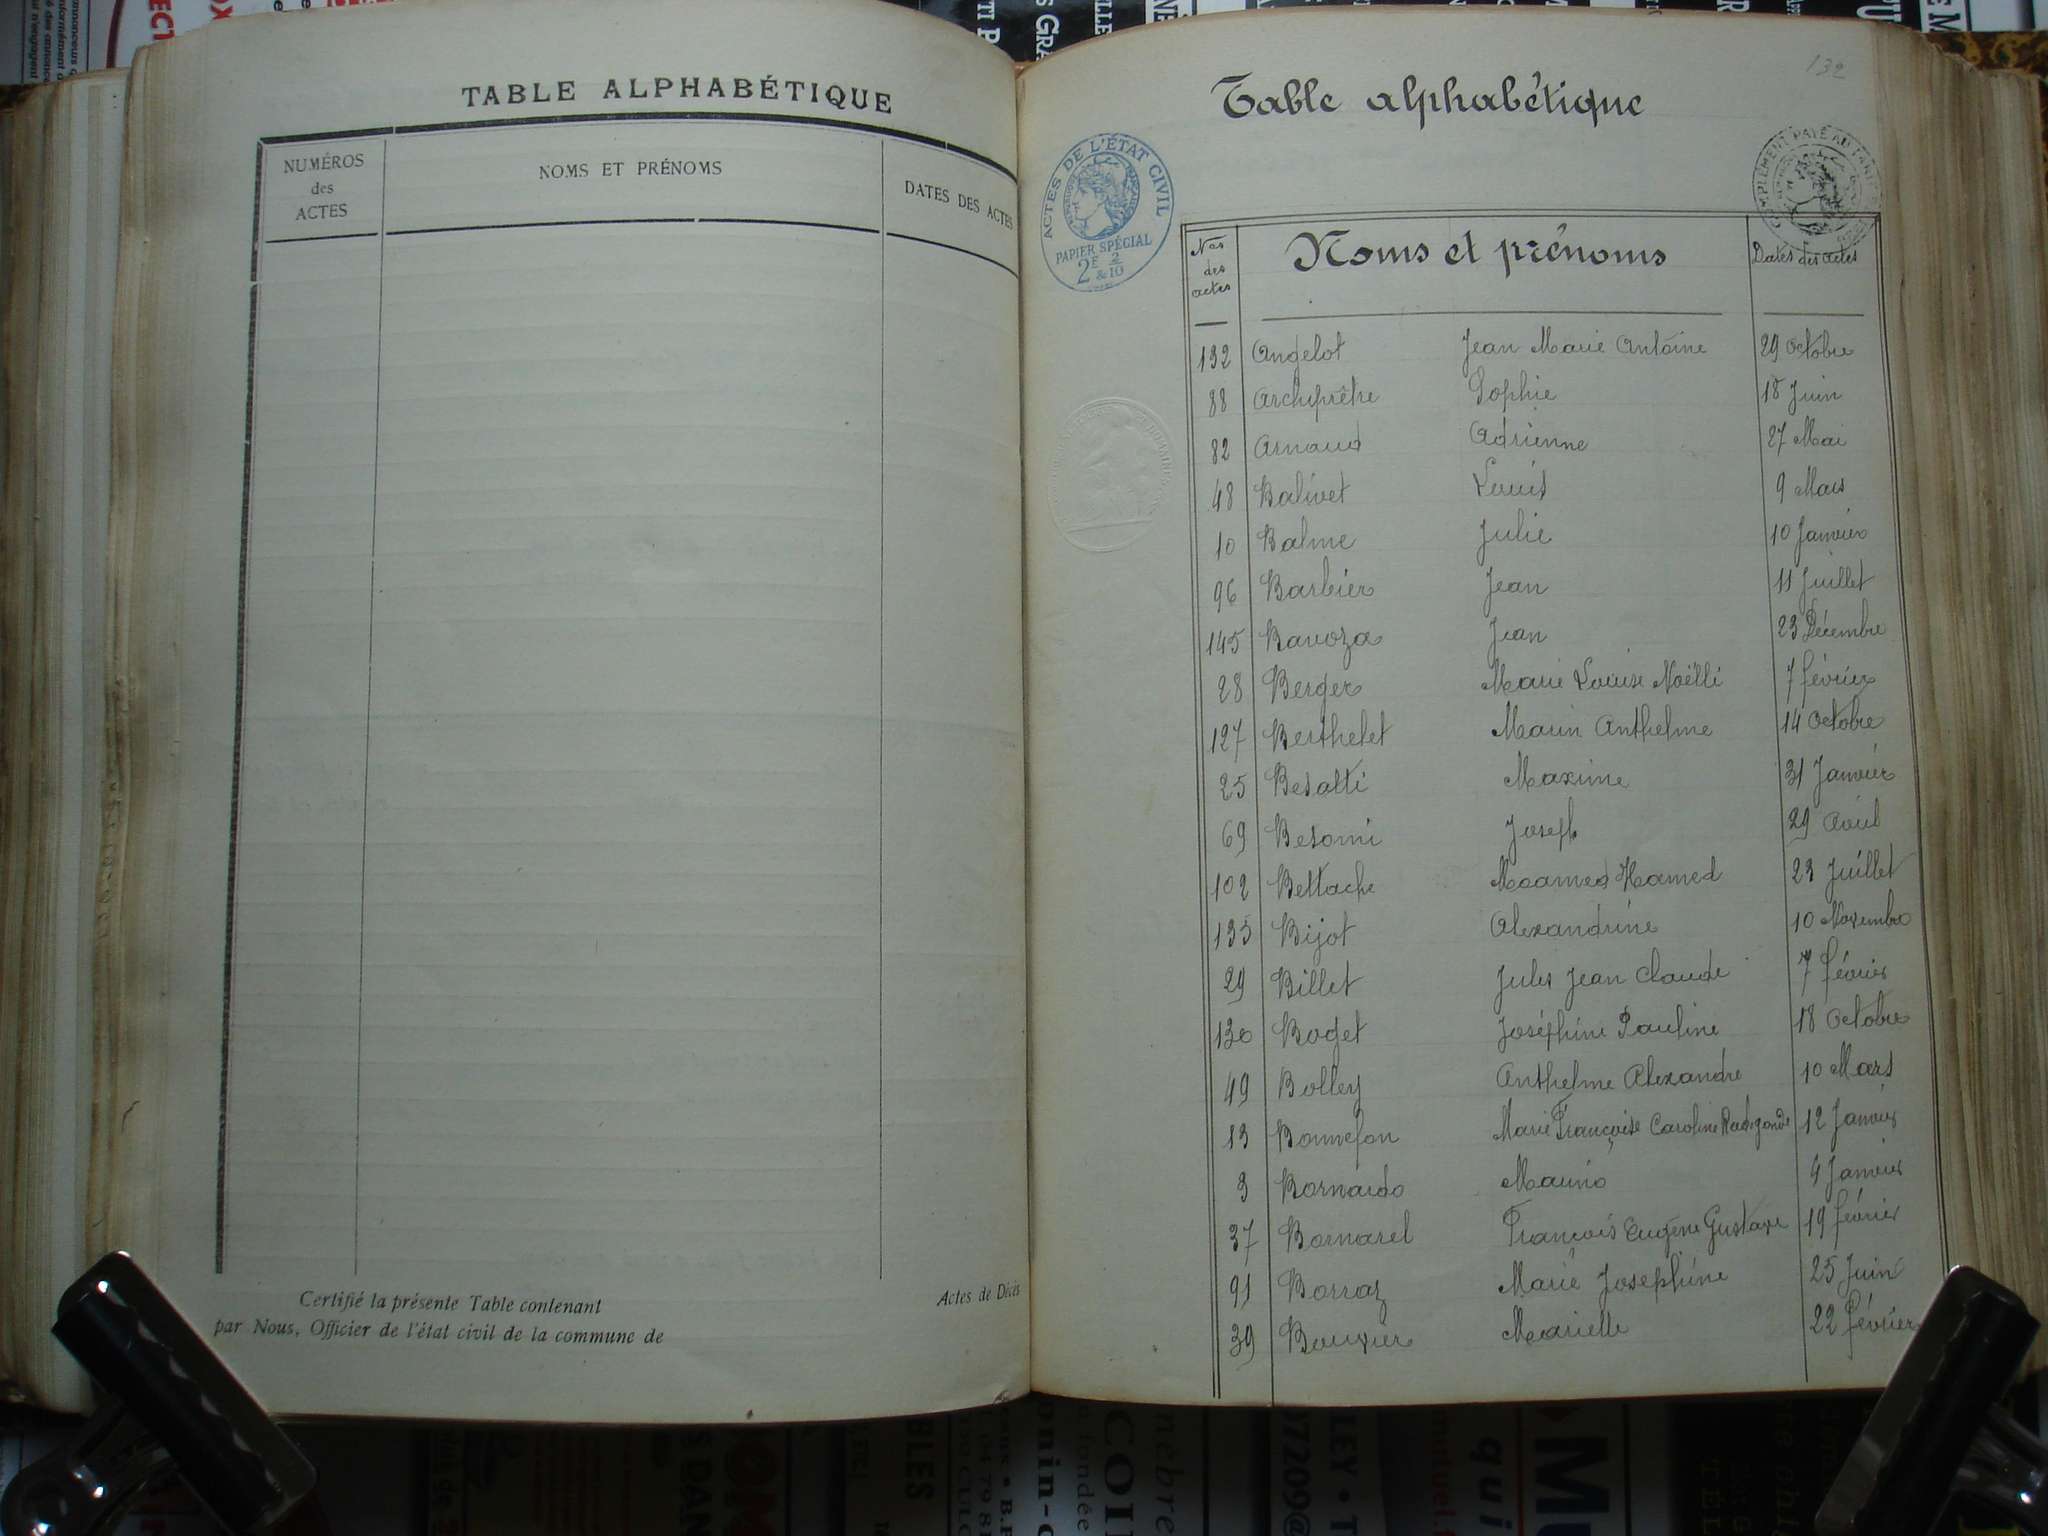 TABLE ALPHABÉTIQUE
NUMÉROS
des
ACTES
NOMS ET PRÉNOMS
DATES DES ACTES
Certifié la présente Table contenant
par Nous, Officier de l'état civil de la commune de
Actes de Décès
132
Table alphabétique
ACTES DE L'ÉTAT CIVIL
PAPIER SPÉCIAL
Nos
des
actes
Noms et prénoms
Dates des actes
132 Angelot Jean Marie Antoine 29 Octobre
88 Archiprêtre Sophie 18 Juin
82 Arnaud Adrienne 27 Mai
48 Balivet Louis 9 Mars
10 Balme Julie 10 Janvier
96 Barbier Jean 11 Juillet
145 Bavoza Jean 23 Décembre
28 Berger Marie Louise Noëlli 7 février
127 Berthelet Marin Anthelme 14 Octobre
25 Besatti Maxime 31 Janvier
69 Besomi Joseph 29 Avril
102 Bettache Moamed Hamed 23 Juillet
135 Bijot Alexandrine 10 Novembre
29 Billet Jules Jean Claude 7 février
130 Boget Joséphine Pauline 18 Octobre
49 Bolley Anthelme Alexandre 10 Mars
13 Bonnefon Marie Françoise Caroline Radegonde 12 Janvier
3 Bornardo Marino 4 Janvier
37 Bornarel François Eugène Gustave 19 février
91 Borraz Marie Josephine 25 Juin
39 Bouvier Marielle 22 février